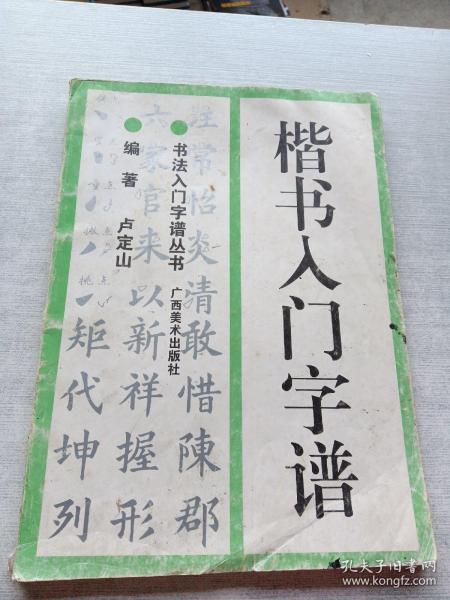 楷书入门字谱
书法入门字谱丛书
广西美术出版社
编著 卢定山
注常怡炎清敢惜陳郡
六家官来以新祥握形
矩代坤列
点
挑
孔夫子旧书网
www.kongfz.com